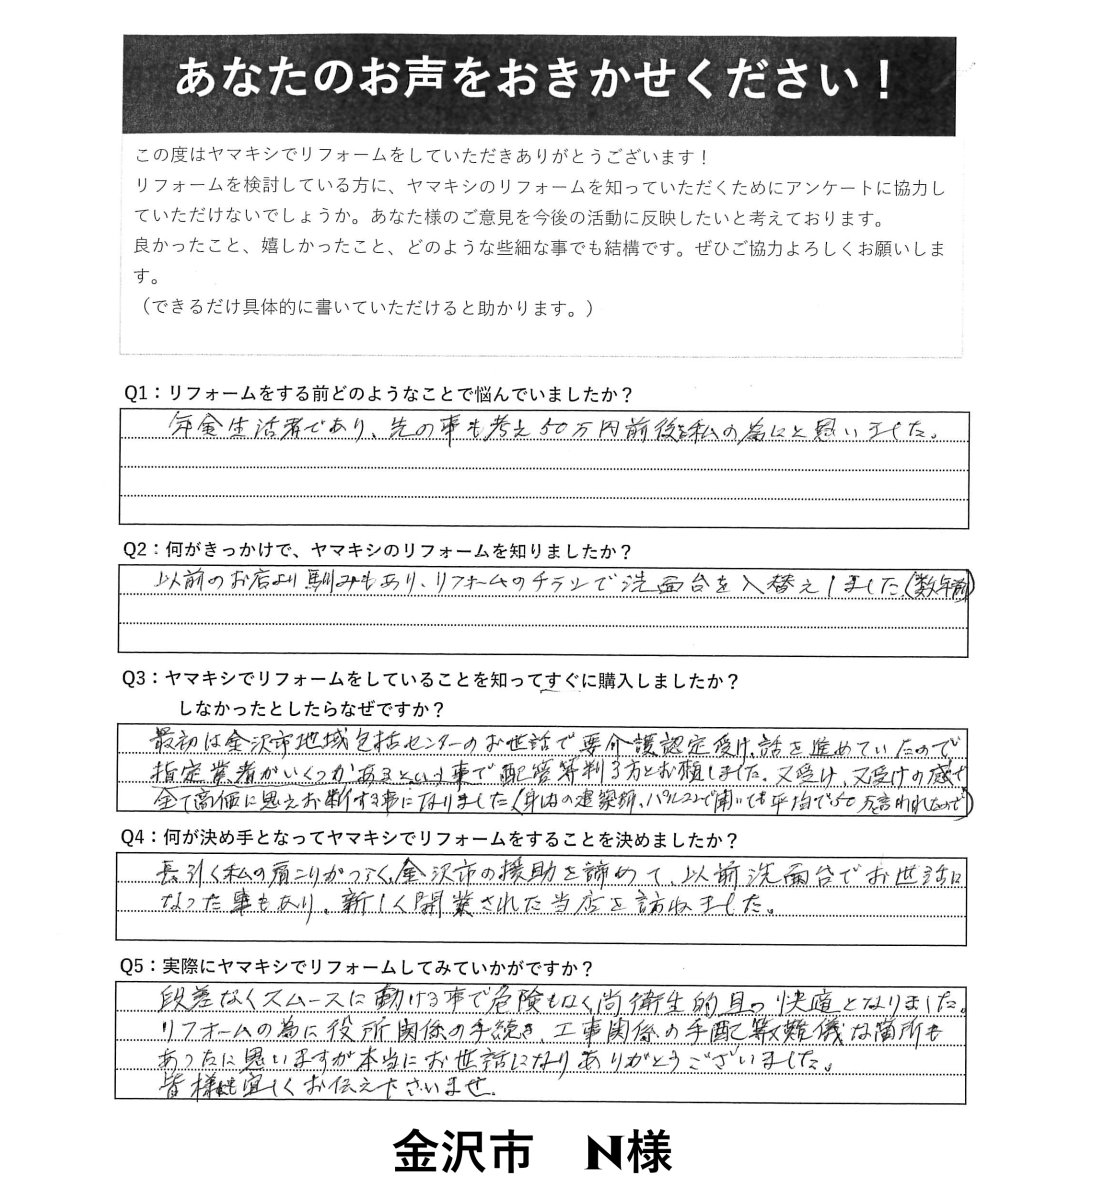 あなたのお声をおきかせください！
この度はヤマキシでリフォームをしていただきありがとうございます！
リフォームを検討している方に、ヤマキシのリフォームを知っていただくためにアンケートに協力し
ていただけないでしょうか。あなた様のご意見を今後の活動に反映したいと考えております。
良かったこと、嬉しかったこと、どのような些細な事でも結構です。ぜひご協力よろしくお願いしま
す。
（できるだけ具体的に書いていただけると助かります。）
Q1：リフォームをする前どのようなことで悩んでいましたか？
年金生活者であり、先の事も考え50万円前後を私の為にと思いました。
Q2：何がきっかけで、ヤマキシのリフォームを知りましたか？
以前のお店より馴みもあり、リフォームのチラシで洗面台を入替えしました（数年前）
Q3：ヤマキシでリフォームをしていることを知ってすぐに購入しましたか？
しなかったとしたらなぜですか？
最初は金沢市地域包括センターのお世話で要介護認定受け、話を進めていたので
指定業者がいくつかあるという事で配管等判る方とお願しました。又受け、又受けの感で
全て高価に思えお断する事になりました（身内の建築師、パルコンで聞いても平均で50万言われたので）
Q4：何が決め手となってヤマキシでリフォームをすることを決めましたか？
長引く私の肩こりがつらく、金沢市の援助を諦めて、以前洗面台でお世話に
なった事もあり、新しく開業された当店を訪ねました。
Q5：実際にヤマキシでリフォームしてみていかがですか？
段差なくスムースに動ける事で危険もなく尚衛生的且つ快適となりました。
リフォームの為に役所関係の手続き、工事関係の手配等難儀な箇所も
あったに思いますが本当にお世話になりありがとうございました。
皆様にも宜しくお伝え下さいませ。
金沢市　N様